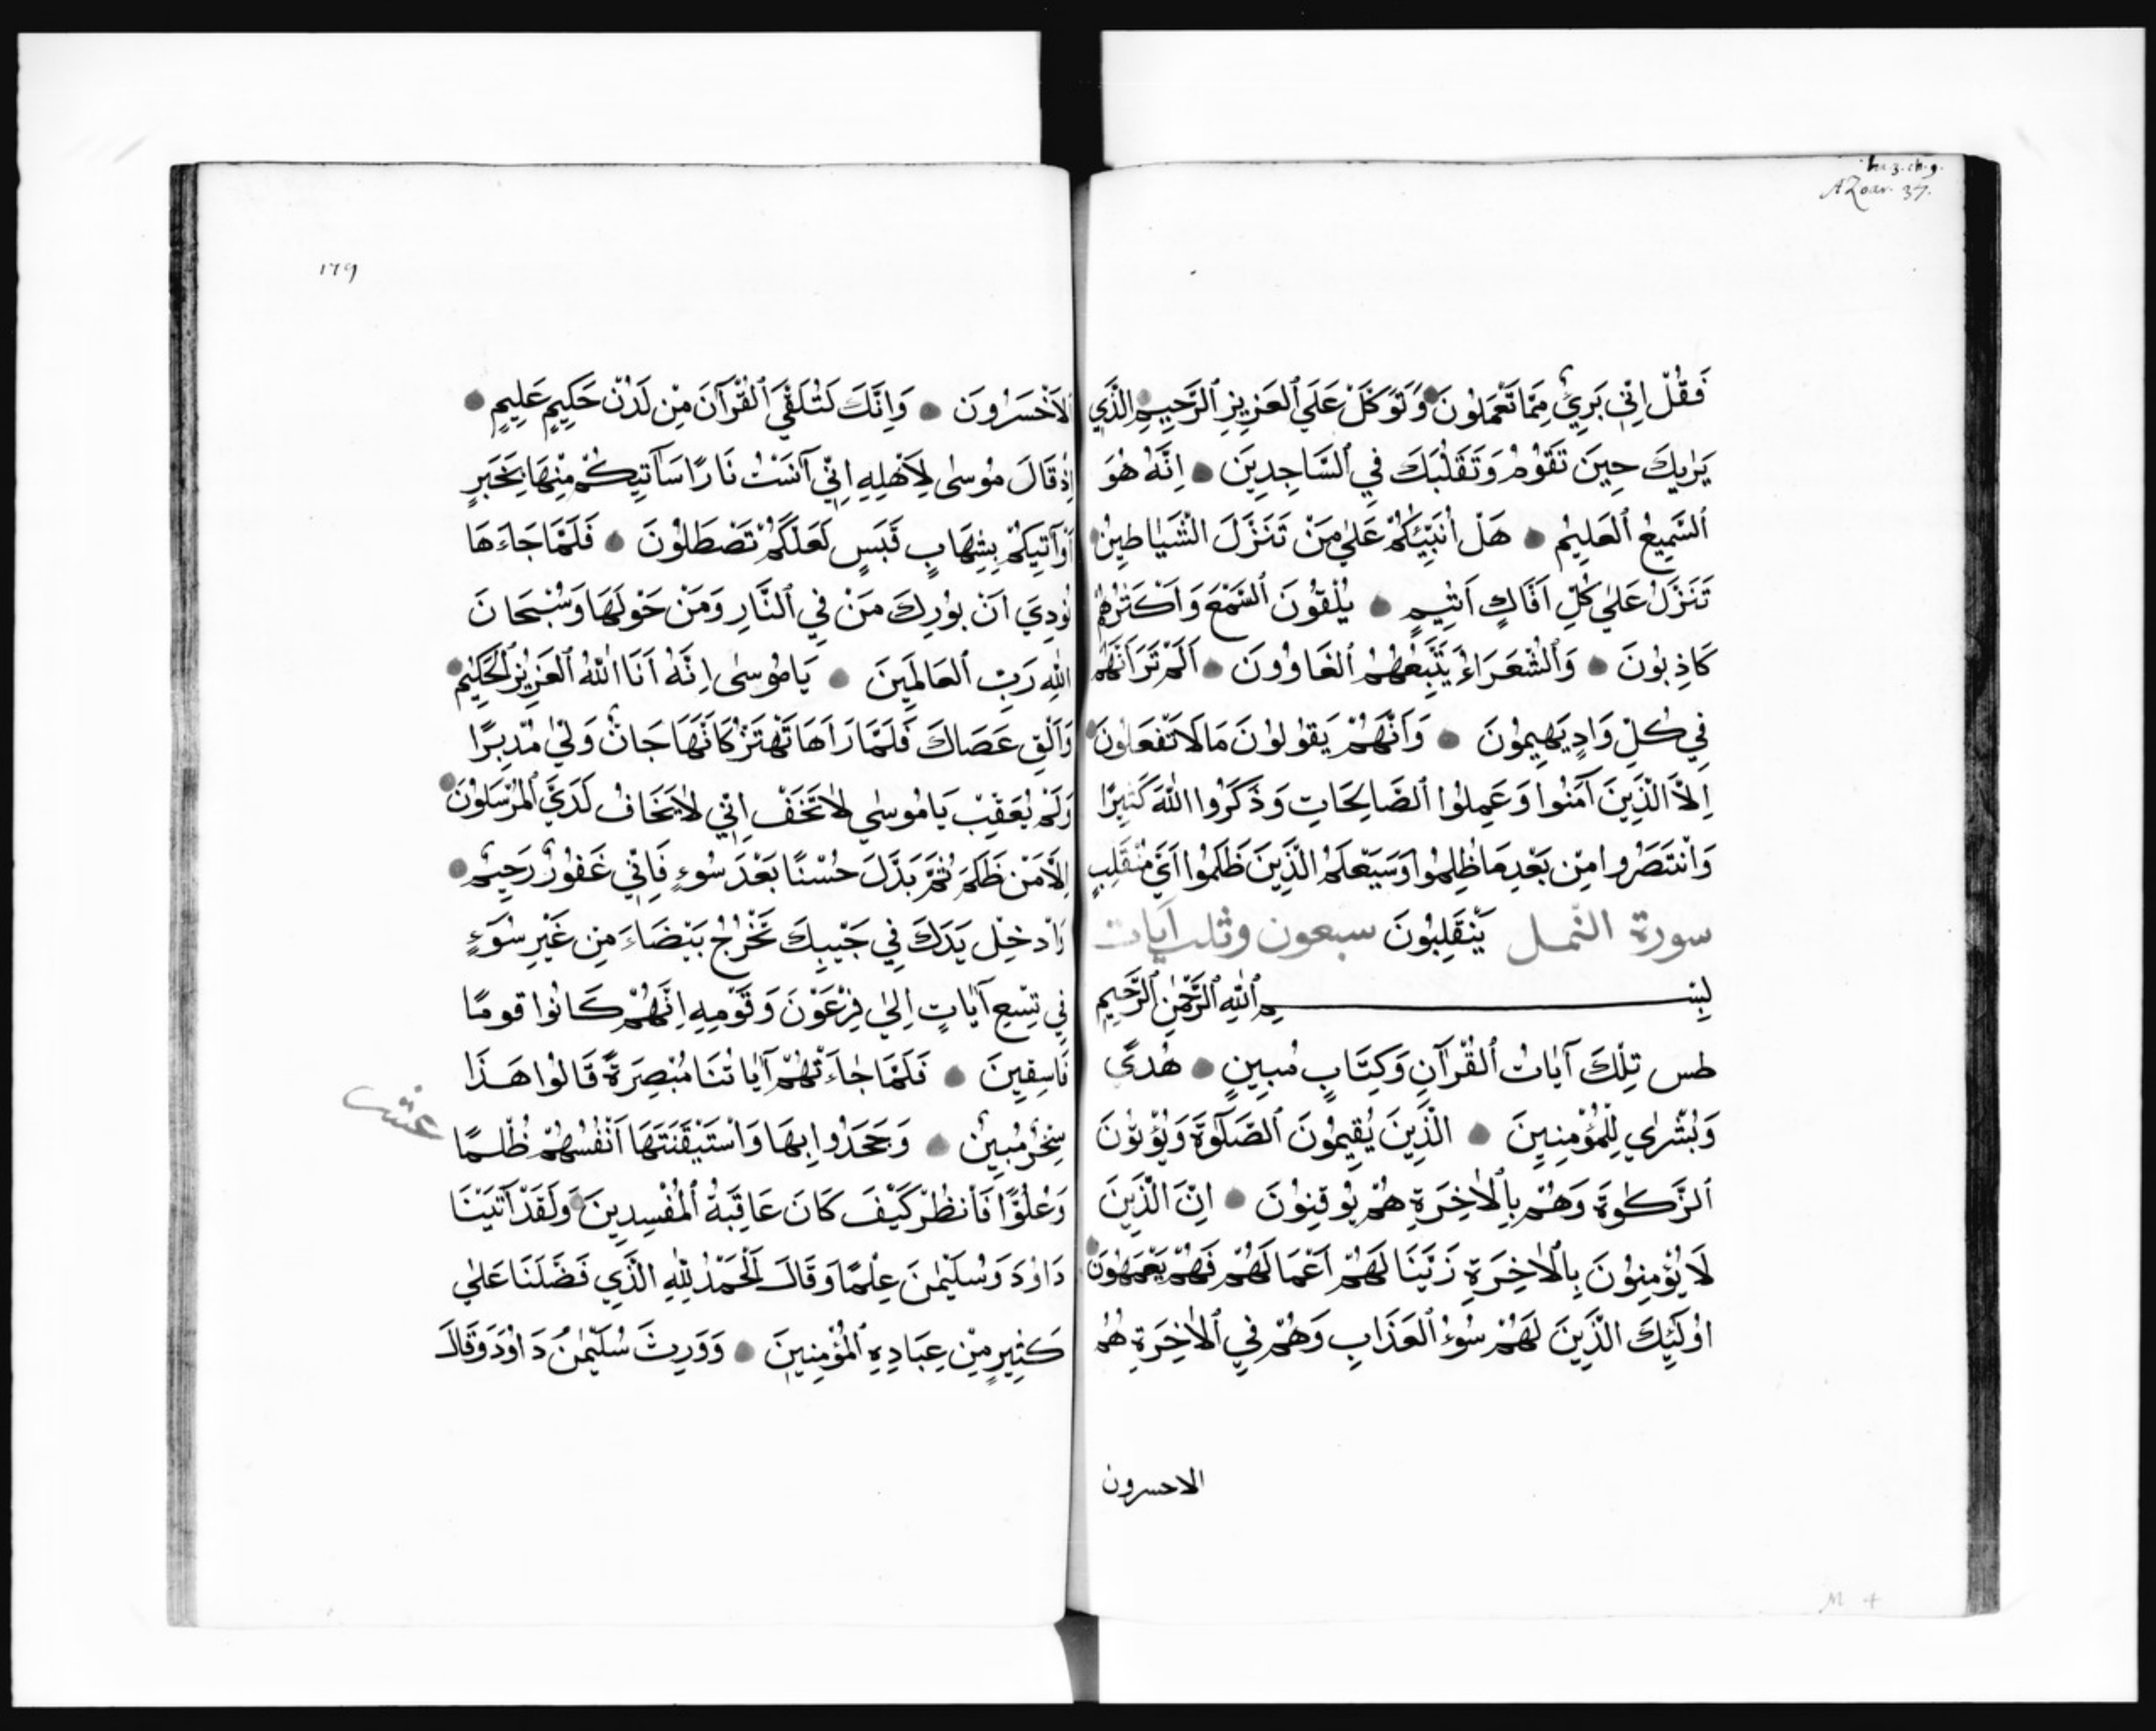 lu.3.ch.9.
AZoar. 37.
فَقُلْ اِنِّي بَرِيءٌ مِمَّا تَعْمَلُونَ وَتَوَكَّلْ عَلَى ٱلْعَزِيزِ ٱلرَّحِيمِ الَّذِي
يَرٰيكَ حِينَ تَقُومُ وَتَقَلُّبَكَ فِي ٱلسَّاجِدِينَ اِنَّهُ هُوَ
ٱلسَّمِيعُ ٱلعَلِيمُ هَلْ اُنَبِّئُكُمْ عَلٰي مَنْ تَنَزَّلَ الشَّيَاطِينُ
تَنَزَّلُ عَلٰي كُلِّ اَفَّاكٍ اَثِيمٍ يُلْقُونَ ٱلسَّمْعَ وَاَكْثَرُهُمْ
كَاذِبُونَ وَٱلشُّعَرَاءُ يَتَّبِعُهُمُ ٱلغَاوُونَ اَلَمْ تَرَ اَنَّهُمْ
فِي كُلِّ وَادٍ يَهِيمُونَ وَاَنَّهُمْ يَقُولُونَ مَا لَا تَفْعَلُونَ
اِلَّا الَّذِينَ آمَنُوا وَعَمِلُوا ٱلصَّالِحَاتِ وَذَكَرُوا اللّٰهَ كَثِيرًا
وَانْتَصَرُوا مِنْ بَعْدِ مَا ظُلِمُوا وَسَيَعْلَمُ الَّذِينَ ظَلَمُوا اَيَّ مُنْقَلِبٍ
سورة النمل يَنْقَلِبُونَ سبعون وثلث آيات
بِسْمِ ٱللّٰهِ ٱلرَّحْمٰنِ ٱلرَّحِيمِ
طس تِلْكَ آيَاتُ ٱلْقُرْآنِ وَكِتَابٍ مُبِينٍ هُدًي
وَبُشْرٰي لِلْمُؤْمِنِينَ الَّذِينَ يُقِيمُونَ ٱلصَّلٰوةَ وَيُؤْتُونَ
ٱلزَّكٰوةَ وَهُمْ بِٱلْاٰخِرَةِ هُمْ يُوقِنُونَ اِنَّ الَّذِينَ
لَا يُؤْمِنُونَ بِٱلْاٰخِرَةِ زَيَّنَا لَهُمْ اَعْمَالَهُمْ فَهُمْ يَعْمَهُونَ
اُولَئِكَ الَّذِينَ لَهُمْ سُوءُ ٱلعَذَابِ وَهُمْ فِي ٱلْاٰخِرَةِ هُمُ
الاحسرون
١٧٩
ٱلاَخْسَرُونَ وَاِنَّكَ لَتُلَقَّيَ ٱلْقُرْآنَ مِنْ لَدُنْ حَكِيمٍ عَلِيمٍ
اِذْ قَالَ مُوسٰى لِاَهْلِهِ اِنِّي آنَسْتُ نَارًا سَآتِيكُمْ مِنْهَا بِخَبَرٍ
اَوْ آتِيكُمْ بِشِهَابٍ قَبَسٍ لَعَلَّكُمْ تَصْطَلُونَ فَلَمَّا جَاءَهَا
نُودِيَ اَنْ بُورِكَ مَنْ فِي ٱلنَّارِ وَمَنْ حَوْلَهَا وَسُبْحَانَ
اللّٰهِ رَبِّ ٱلعَالَمِينَ يَا مُوسٰى اِنَّهُ اَنَا اللّٰهُ ٱلعَزِيزُ ٱلْحَكِيمُ
وَاَلْقِ عَصَاكَ فَلَمَّا رَاَهَا تَهْتَزُّ كَاَنَّهَا جَانٌّ وَلّٰي مُدْبِرًا
وَلَمْ يُعَقِّبْ يَا مُوسٰي لَا تَخَفْ اِنِّي لَا يَخَافُ لَدَيَّ ٱلمُرْسَلُونَ
اِلَّا مَنْ ظَلَمَ ثُمَّ بَدَّلَ حُسْنًا بَعْدَ سُوءٍ فَاِنِّي غَفُورٌ رَحِيمٌ
وَاَدْخِلْ يَدَكَ فِي جَيْبِكَ تَخْرُجْ بَيْضَاءَ مِن غَيْرِ سُوءٍ
فِي تِسْعِ آيَاتٍ اِلٰي فِرْعَوْنَ وَقَوْمِهِ اِنَّهُمْ كَانُوا قومًا
فَاسِقِينَ فَلَمَّا جَاءَتْهُمْ آيَاتُنَا مُبْصِرَةً قَالُوا هَذَا
سِحْرٌ مُبِينٌ وَجَحَدُوا بِهَا وَاسْتَيْقَنَتَهَا اَنْفُسُهُمْ ظُلْمًا
عشر
وَعُلُوًّا فَانْظُرْ كَيْفَ كَانَ عَاقِبَةُ ٱلْمُفْسِدِينَ وَلَقَدْ آتَيْنَا
دَاوُدَ وَسُلَيْمٰنَ عِلْمًا وَقَالَ الْحَمْدُ لِلّٰهِ الَّذِي فَضَّلَنَا عَلٰي
كَثِيرٍ مِنْ عِبَادِهِ ٱلْمُؤْمِنِينَ وَوَرِثَ سُلَيْمٰنُ دَاوُدَ وَقَالَ